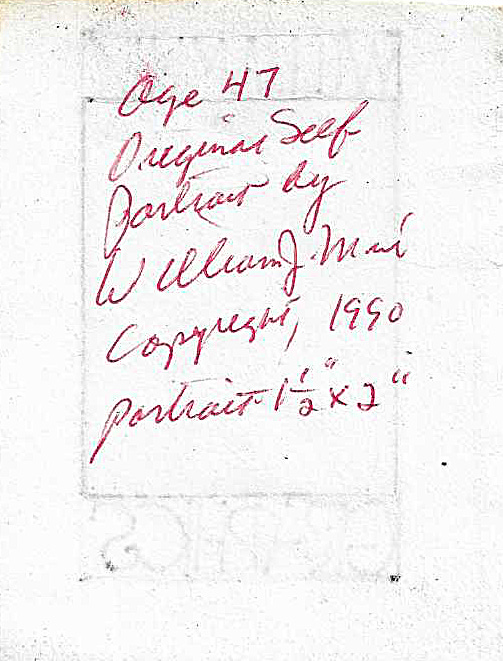 Age 47
Original Self
Portrait by
William J. Muir
Copyright, 1990
portrait 1 1/2" x 2"